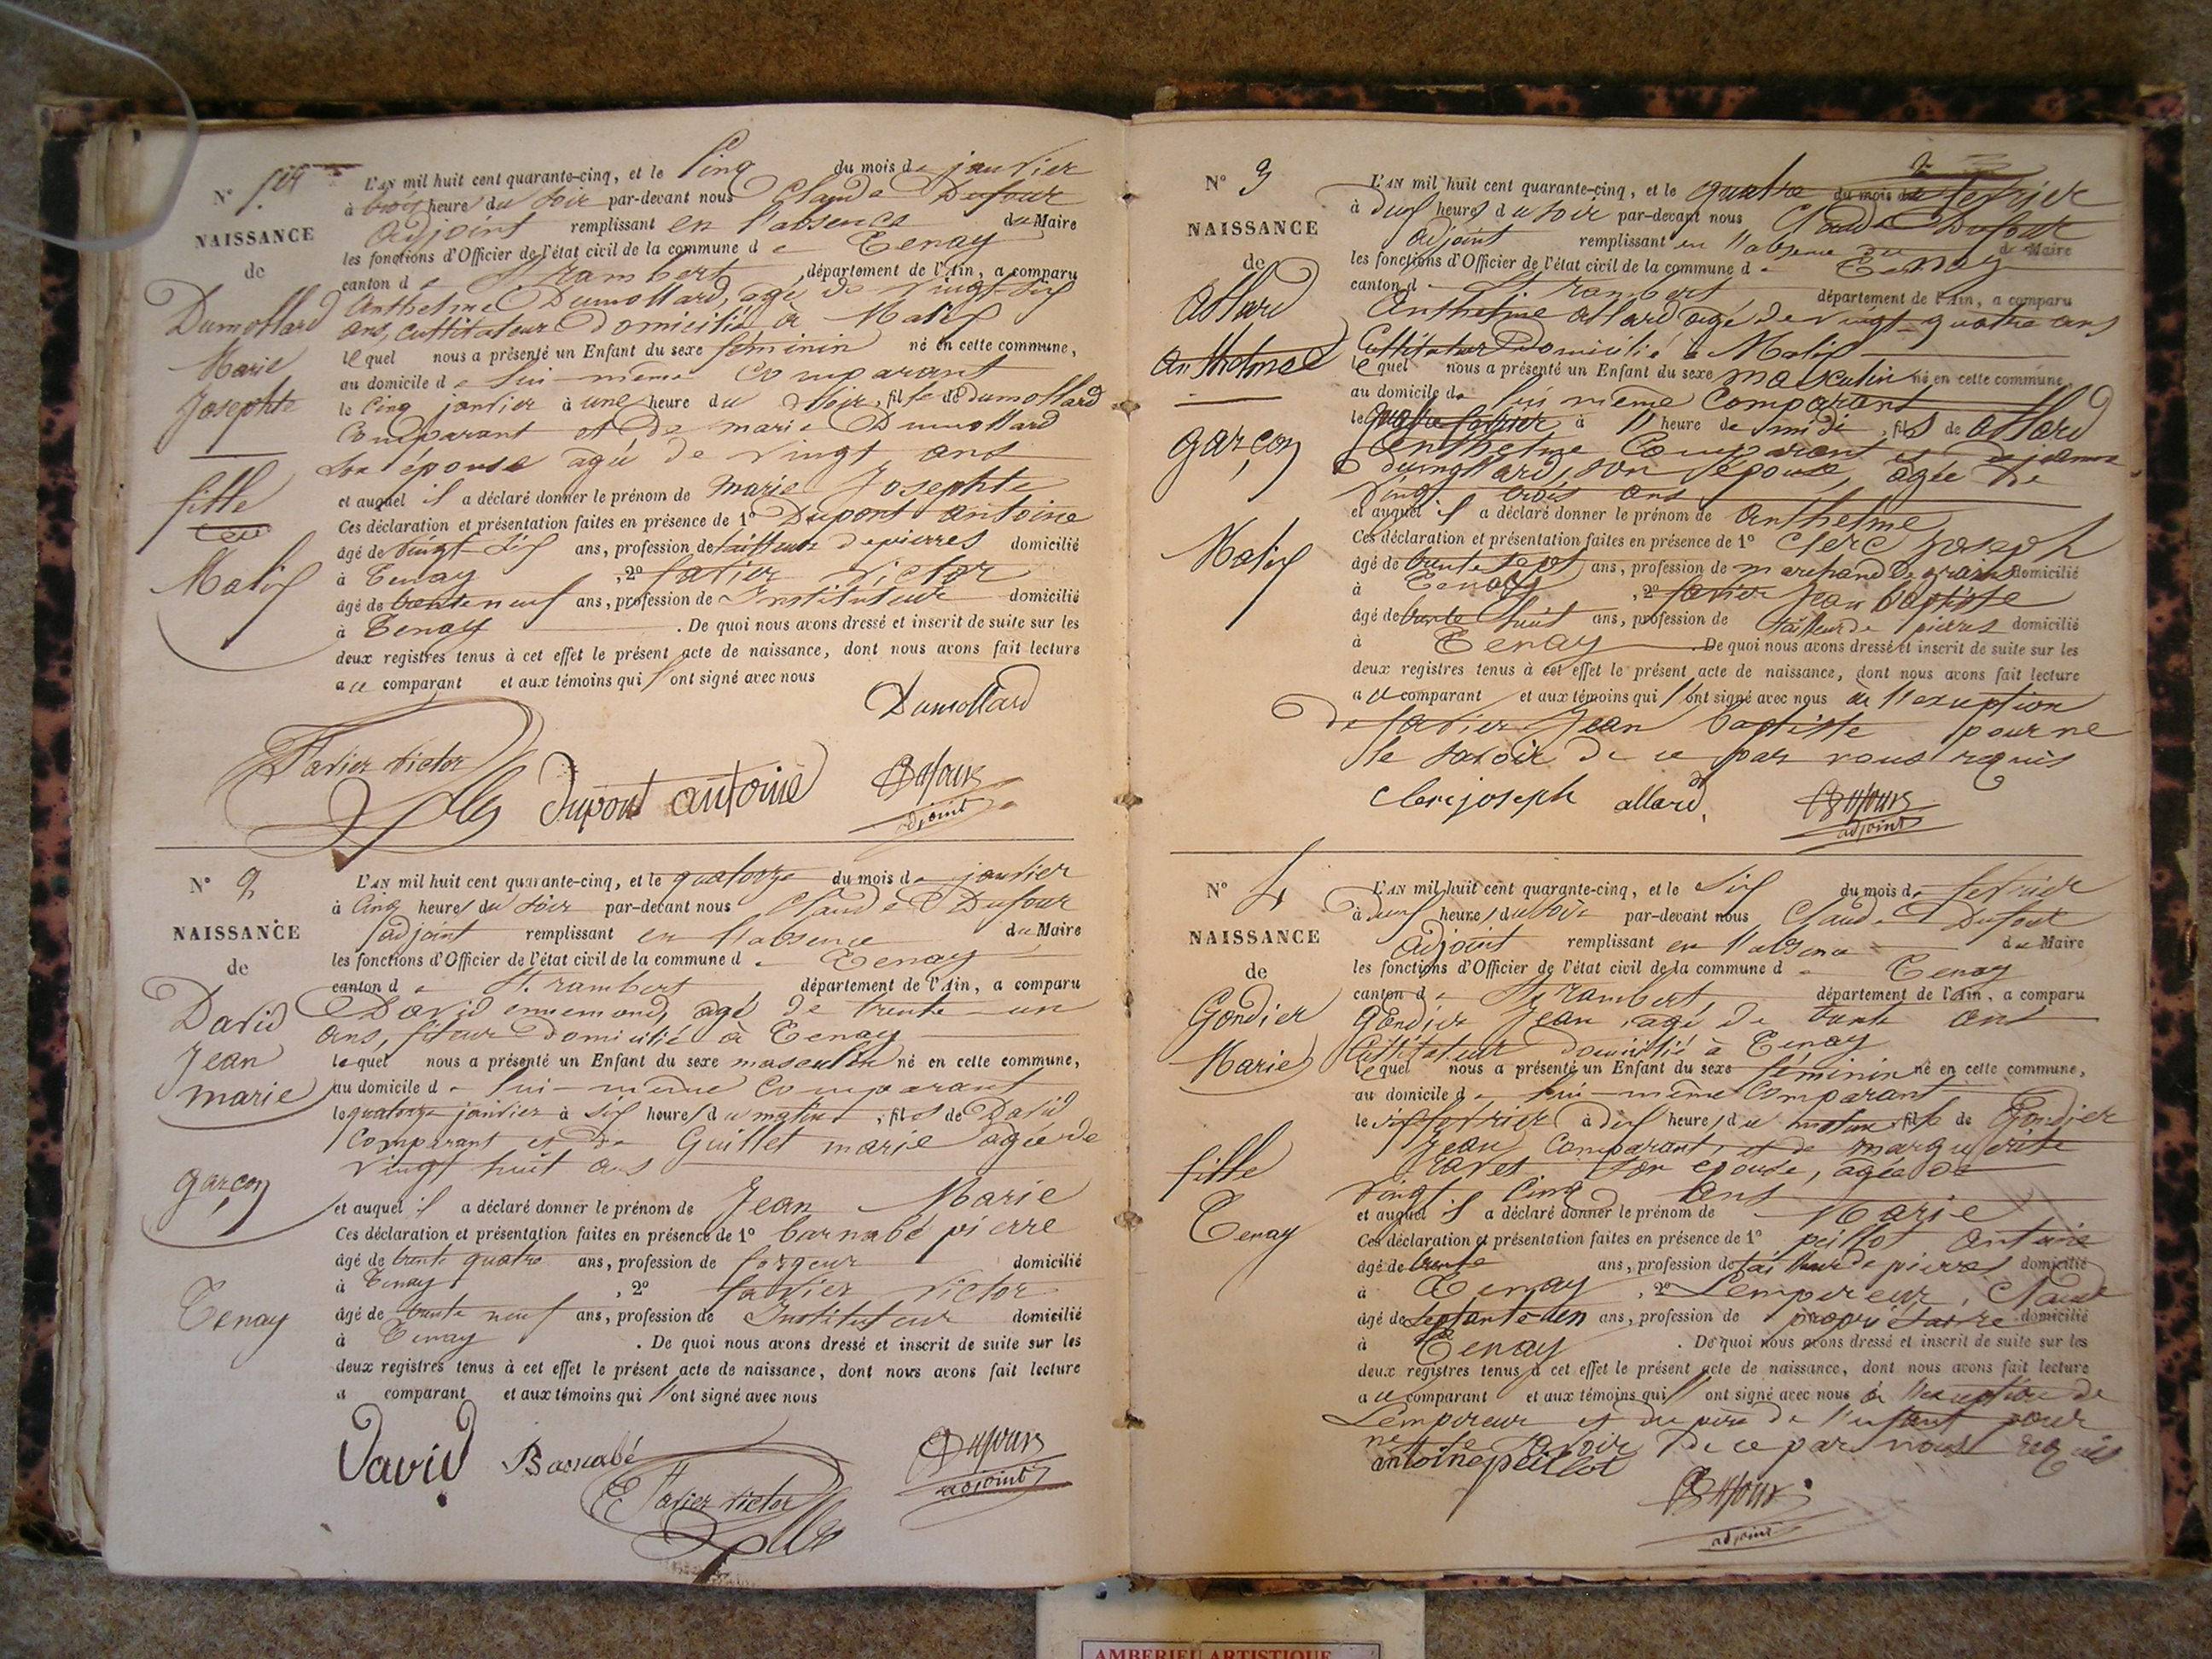 N° 1er
NAISSANCE
de
Dumollard
Marie
Josephte
fille
Malix
L'AN mil huit cent quarante-cinq, et le Cinq du mois de janvier
à trois heure du soir par-devant nous Claude Dufour
adjoint remplissant en l'absence du Maire
les fonctions d'Officier de l'état civil de la commune de Tenay
canton de St rambert, département de l'Ain, a comparu
Anthelme Dumollard, agé de vingt-six
ans, cultivateur domicilié à Malix
lequel nous a présenté un Enfant du sexe féminin né en cette commune,
au domicile de lui-même comparant
le cinq janvier à une heure du soir, fille de Dumollard
Comparant et de marie Dumollard
son épouse agée de vingt ans
et auquel il a déclaré donner le prénom de marie Josephte
Ces déclaration et présentation faites en présence de 1° Dupont antoine
âgé de vingt-six ans, profession de tailleur de pierres domicilié
à Tenay, 2° favier victor
âgé de trente neuf ans, profession de Instituteur domicilié
à Tenay. De quoi nous avons dressé et inscrit de suite sur les
deux registres tenus à cet effet le présent acte de naissance, dont nous avons fait lecture
a ce comparant et aux témoins qui l'ont signé avec nous
Dumollard
Favier victor dupont antoine Dufour
adjoint
N° 2
NAISSANCE
de
David
Jean
marie
garçon
Tenay
L'AN mil huit cent quarante-cinq, et le quatorze du mois de janvier
à cinq heures du soir par-devant nous Claude Dufour
adjoint remplissant en l'absence du Maire
les fonctions d'Officier de l'état civil de la commune de Tenay
canton de St. rambert département de l'Ain, a comparu
David ennemond, agé de trente-un
ans, fileur domicilié à Tenay
lequel nous a présenté un Enfant du sexe masculin né en cette commune,
au domicile de lui-même comparant
le quatorze janvier à six heures du matin, fils de David
Comparant et de Guillet marie agée de
vingt huit ans
et auquel il a déclaré donner le prénom de Jean Marie
Ces déclaration et présentation faites en présence de 1° barnabé pierre
âgé de trente quatre ans, profession de forgeur domicilié
à Tenay, 2° favier victor
âgé de trente neuf ans, profession de Instituteur domicilié
à Tenay. De quoi nous avons dressé et inscrit de suite sur les
deux registres tenus à cet effet le présent acte de naissance, dont nous avons fait lecture
a comparant et aux témoins qui l'ont signé avec nous
David Barnabé Dufour
Favier victor adjoint
2
N° 3
NAISSANCE
de
allard
anthelme
garçon
Malix
L'AN mil huit cent quarante-cinq, et le quatre du mois de fevrier
à deux heures du soir par-devant nous Claude Dufour
adjoint remplissant en l'absence du Maire
les fonctions d'Officier de l'état civil de la commune de Tenay
canton de St rambert département de l'Ain, a comparu
Anthelme allard agé de vingt-quatre ans
Cultivateur domicilié à Malix
lequel nous a présenté un Enfant du sexe masculin né en cette commune,
au domicile de lui même comparant
le quatre fevrier à l'heure de midi, fils de allard
anthelme Comparant et de
dumollard, son épouse, agée de
vingt trois ans
et auquel il a déclaré donner le prénom de anthelme
Ces déclaration et présentation faites en présence de 1° Clerc joseph
âgé de trente sept ans, profession de marchand de grains domicilié
à Tenay, 2° favier jean baptiste
âgé de trente huit ans, profession de tailleur de pierres domicilié
à Tenay. De quoi nous avons dressé et inscrit de suite sur les
deux registres tenus à cet effet le présent acte de naissance, dont nous avons fait lecture
a ce comparant et aux témoins qui l'ont signé avec nous à l'exception
de favier jean baptiste pour ne
le savoir de ce par nous requis
Clerc joseph allard Dufour
adjoint
N° 4
NAISSANCE
de
Gondier
Marie
fille
Tenay
L'AN mil huit cent quarante-cinq, et le six du mois de fevrier
à deux heures du soir par-devant nous Claude Dufour
adjoint remplissant en l'absence du Maire
les fonctions d'Officier de l'état civil de la commune de Tenay
canton de St rambert, département de l'Ain, a comparu
Gondier jean, agé de trente ans
Cultivateur domicilié à Tenay
lequel nous a présenté un Enfant du sexe féminin né en cette commune,
au domicile de lui-même comparant
le six fevrier à dix heures du matin, fille de Gondier
jean comparant, et de marguerite
son épouse, agée de
vingt cinq ans
et auquel il a déclaré donner le prénom de Marie
Ces déclaration et présentation faites en présence de 1° peillot antoine
âgé de trente ans, profession de tailleur de pierres domicilié
à Tenay, 2° Lempereur, Claude
âgé de septante-un ans, profession de propriétaire domicilié
à Tenay. De quoi nous avons dressé et inscrit de suite sur les
deux registres tenus à cet effet le présent acte de naissance, dont nous avons fait lecture
a ce comparant et aux témoins qui l'ont signé avec nous à l'exception de
Lempereur et du père de l'enfant pour
ne le savoir de ce par nous requis
antoine peillot
Dufour
adjoint
AMBERIEU ARTISTIQUE